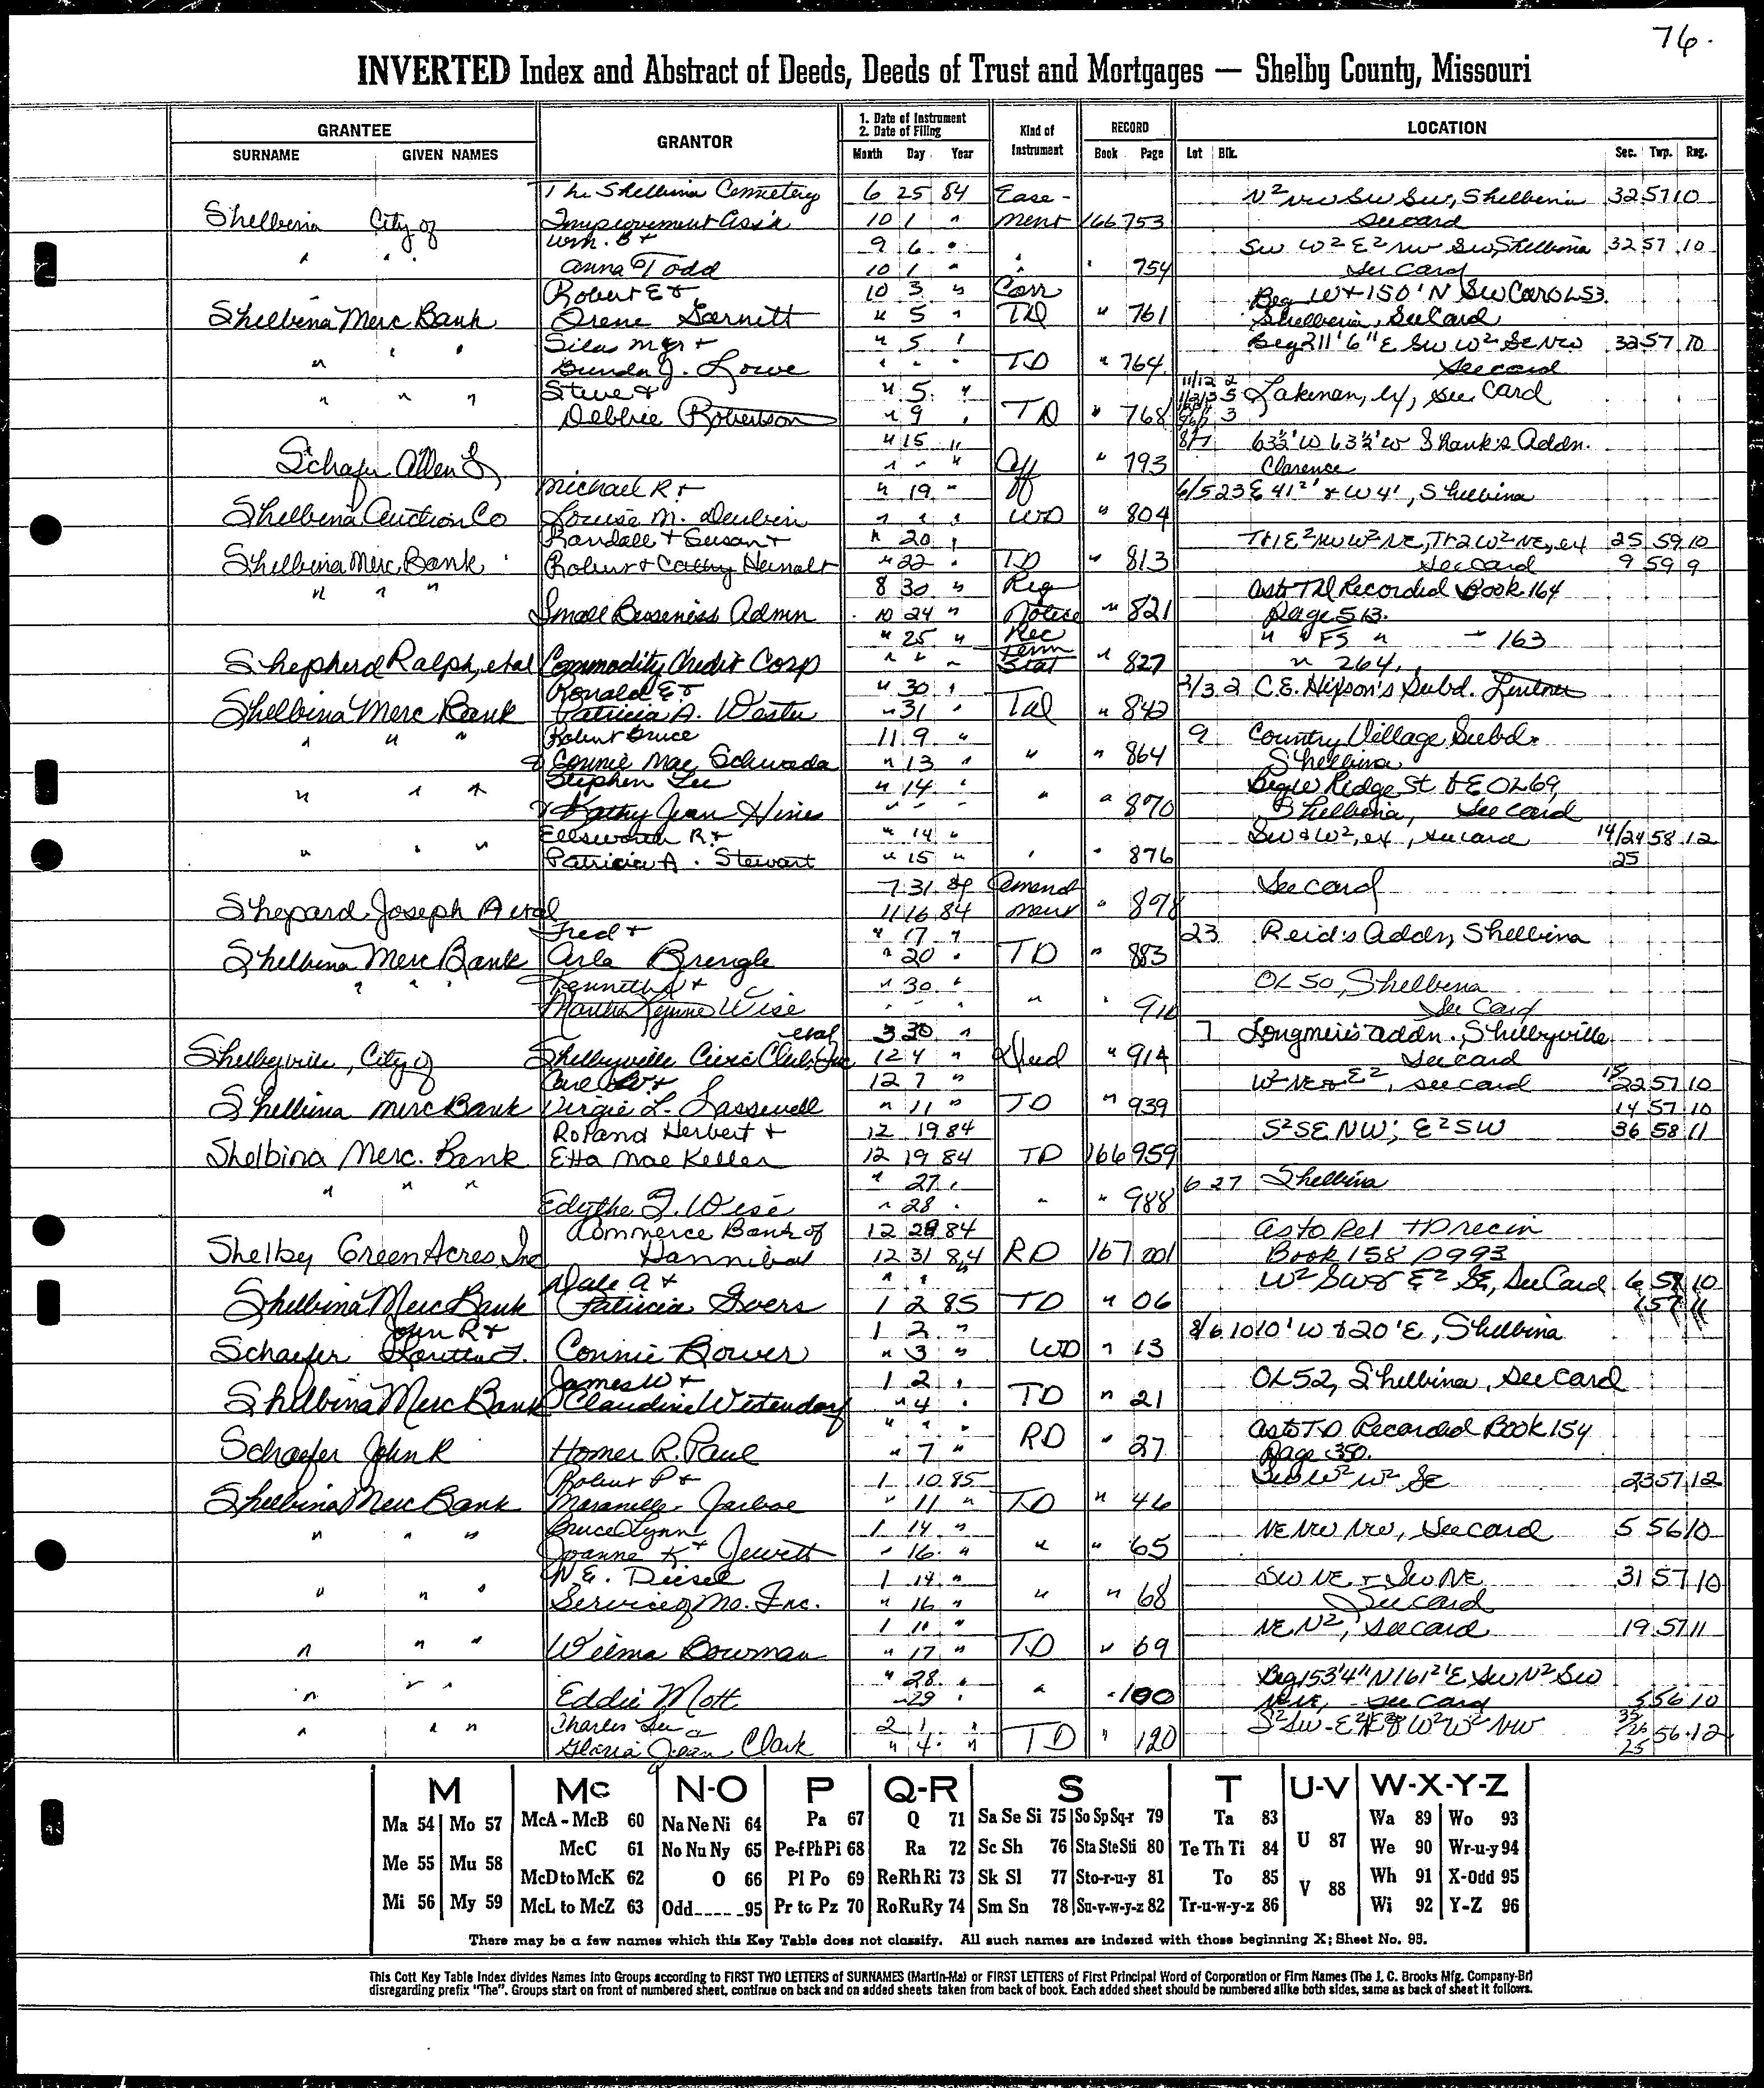 76.
INVERTED Index and Abstract of Deeds, Deeds of Trust and Mortgages — Shelby County, Missouri
GRANTEE GRANTOR 1. Date of Instrument 2. Date of Filing Kind of Instrument RECORD LOCATION
SURNAME GIVEN NAMES Month Day Year Book Page Lot Blk. Sec. Twp. Rng.
The Shelbina Cemetery 6 25 84 Ease- N² NW SW SW, Shelbina 32 57 10
Shelbina City of Improvement Ass'n 10 1 " ment 166 753 See card
Wm. B + 9 6 " SW W² E² NW SW, Shelbina 32 57 10
" " " Anna Todd 10 1 " " " 754 See Card
Robert E + 10 3 " Corr Beg W + 150' N SW Car OL 53
Shelbina Merc Bank Irene Garnett " 5 " TD " 761 Shelbina, See Card
Silas M + " 5 " Beg 211' 6" E SW W² SE NW 32 57 10
" " " Brenda J. Lowe " " " TD " 764 See card
Steve + " 5 " 11/12 2
" " " Debbie Robertson " 9 " TD " 768 Lakenan, ex, see Card
" 15 " 8/7 63½' W 63½' W Shank's Addn.
Schafer Allen L " " " Aff " 793 Clarence
Michael R + " 19 " 6/5 23 E 41²' & W 4', Shelbina
Shelbina Auction Co Louise M. Deubin " " " WD " 804
Randall + Susan + " 20 " Tr 1 E² NW W² NE, Tr 2 W² NE, ex 25 59 10
Shelbina Merc Bank Robert + Cathy " 22 " TD " 813 See card 9 59 9
" " " 8 30 " Req As to TD Recorded Book 164
Small Business Admn 10 24 " Notice " 821 Page 513.
" 25 " Rec " " FS " " 163
Shepherd Ralph, etal Commodity Credit Corp " " " Term Stat " 827 " 264.
Ronald E + " 30 " 2/3 2 C.E. Hixson's Subd. Lentner
Shelbina Merc Bank Patricia A. Wester " 31 " TD " 842
Robert Bruce 11 9 " 9 Country Village Subd.
" " " & Connie Mae Schwada " 13 " " " 864 Shelbina
Stephen Lee " 14 " Beg W Ridge St & E OL 69,
" " " & Kathy Jean Hines " " " " " 870 Shelbina, See card
Ellsworth R + " 14 " SW & W², ex, see card 14/24 58 12
" " " Patricia A. Stewart " 15 " " " 876 25
7 31 84 Amend See card
Shepard Joseph A etal 11 16 84 ment " 898
Fred + " 17 " 23 Reid's Addn, Shelbina
Shelbina Merc Bank Arla Brengle " 20 " TD " 883
Kenneth A + " 30 " OL 50, Shelbina
" " " Martha Lynne Wise " " " " " See Card
etal 3 30 " 7 Longmire's addn., Shelbyville
Shelbyville, City of Shelbyville Civic Club, Inc 12 4 " Deed " 914 See card
12 7 " W² NE & E², see card 15/22 57 10
Shelbina Merc Bank Virgie L. Lasswell " 11 " TD " 939 14 57 10
Roland Herbert + 12 19 84 S² SE NW; E² SW 36 58 11
Shelbina Merc. Bank Etta Mae Keller 12 19 84 TD 166 959
" 27 " 6 27 Shelbina
" " " Edythe F. Wise " 28 " " " 988
Commerce Bank of 12 28 84 As to Rel TD rec in
Shelby Green Acres, Inc Hannibal 12 31 84 RD 167 001 Book 158 P 993
Dale A + " " " W² SW & E² SE, See Card 6 58 10
Shelbina Merc Bank Patricia Svers 1 2 85 TD " 06 1 57 11
John R + 1 2 " 8/6 10 10' W & 20' E, Shelbina
Schaefer Loretta F. Connie Bower " 3 " WD " 13
James W + 1 2 " OL 52, Shelbina, See card
Shelbina Merc Bank Claudine Westendorf " 4 " TD " 21
" " " As to TD Recorded Book 154
Schaefer John R Homer R. Paul " 7 " RD " 27 Page 350.
Robert P + 1 10 85 W² W² SE 23 57 12
Shelbina Merc Bank Maranelle Jarboe " 11 " TD " 46
Bruce Lynn 1 14 " NE NW NW, See card 5 56 10
" " " Joanne K + Jewett " 16 " " " 65
N.E. Diesel 1 14 " SW NE + SW NE 31 57 10
" " " Service of Mo. Inc. " 16 " " " 68 See card
1 11 " NE N², see card 19 57 11
" " " Wilma Bowman " 17 " TD " 69
" 28 " Beg 153' 4" N 161²' E SW N² SW
" " " Eddie Mott " 29 " " " 100 NE NE, see card 5 56 10
Charles Lee 2 1 " S² SW - E² E² & W² W² NW 35/26 56 12
" " " Gloria Jean Clark " 4 " TD " 120 25
M Mc N-O P Q-R S T U-V W-X-Y-Z
Ma 54 Mo 57 McA - McB 60 Na Ne Ni 64 Pa 67 Q 71 Sa Se Si 75 So Sp Sq-r 79 Ta 83 U 87 Wa 89 Wo 93
Me 55 Mu 58 McC 61 No Nu Ny 65 Pe-f Ph Pi 68 Ra 72 Sc Sh 76 Sta Ste Sti 80 Te Th Ti 84 V 88 We 90 Wr-u-y 94
Mi 56 My 59 McD to McK 62 O 66 Pl Po 69 Re Rh Ri 73 Sk Sl 77 Sto-r-u-y 81 To 85 Wh 91 X-Odd 95
McL to McZ 63 Odd---- -95 Pr to Pz 70 Ro Ru Ry 74 Sm Sn 78 Su-v-w-y-z 82 Tr-u-w-y-z 86 Wi 92 Y-Z 96
There may be a few names which this Key Table does not classify. All such names are indexed with those beginning X; Sheet No. 95.
This Cott Key Table Index divides Names into Groups according to FIRST TWO LETTERS of SURNAMES (Martin-Ma) or FIRST LETTERS of First Principal Word of Corporation or Firm Names (The J. C. Brooks Mfg. Company-Br)
disregarding prefix "The". Groups start on front of numbered sheet, continue on back and on added sheets taken from back of book. Each added sheet should be numbered alike both sides, same as back of sheet it follows.